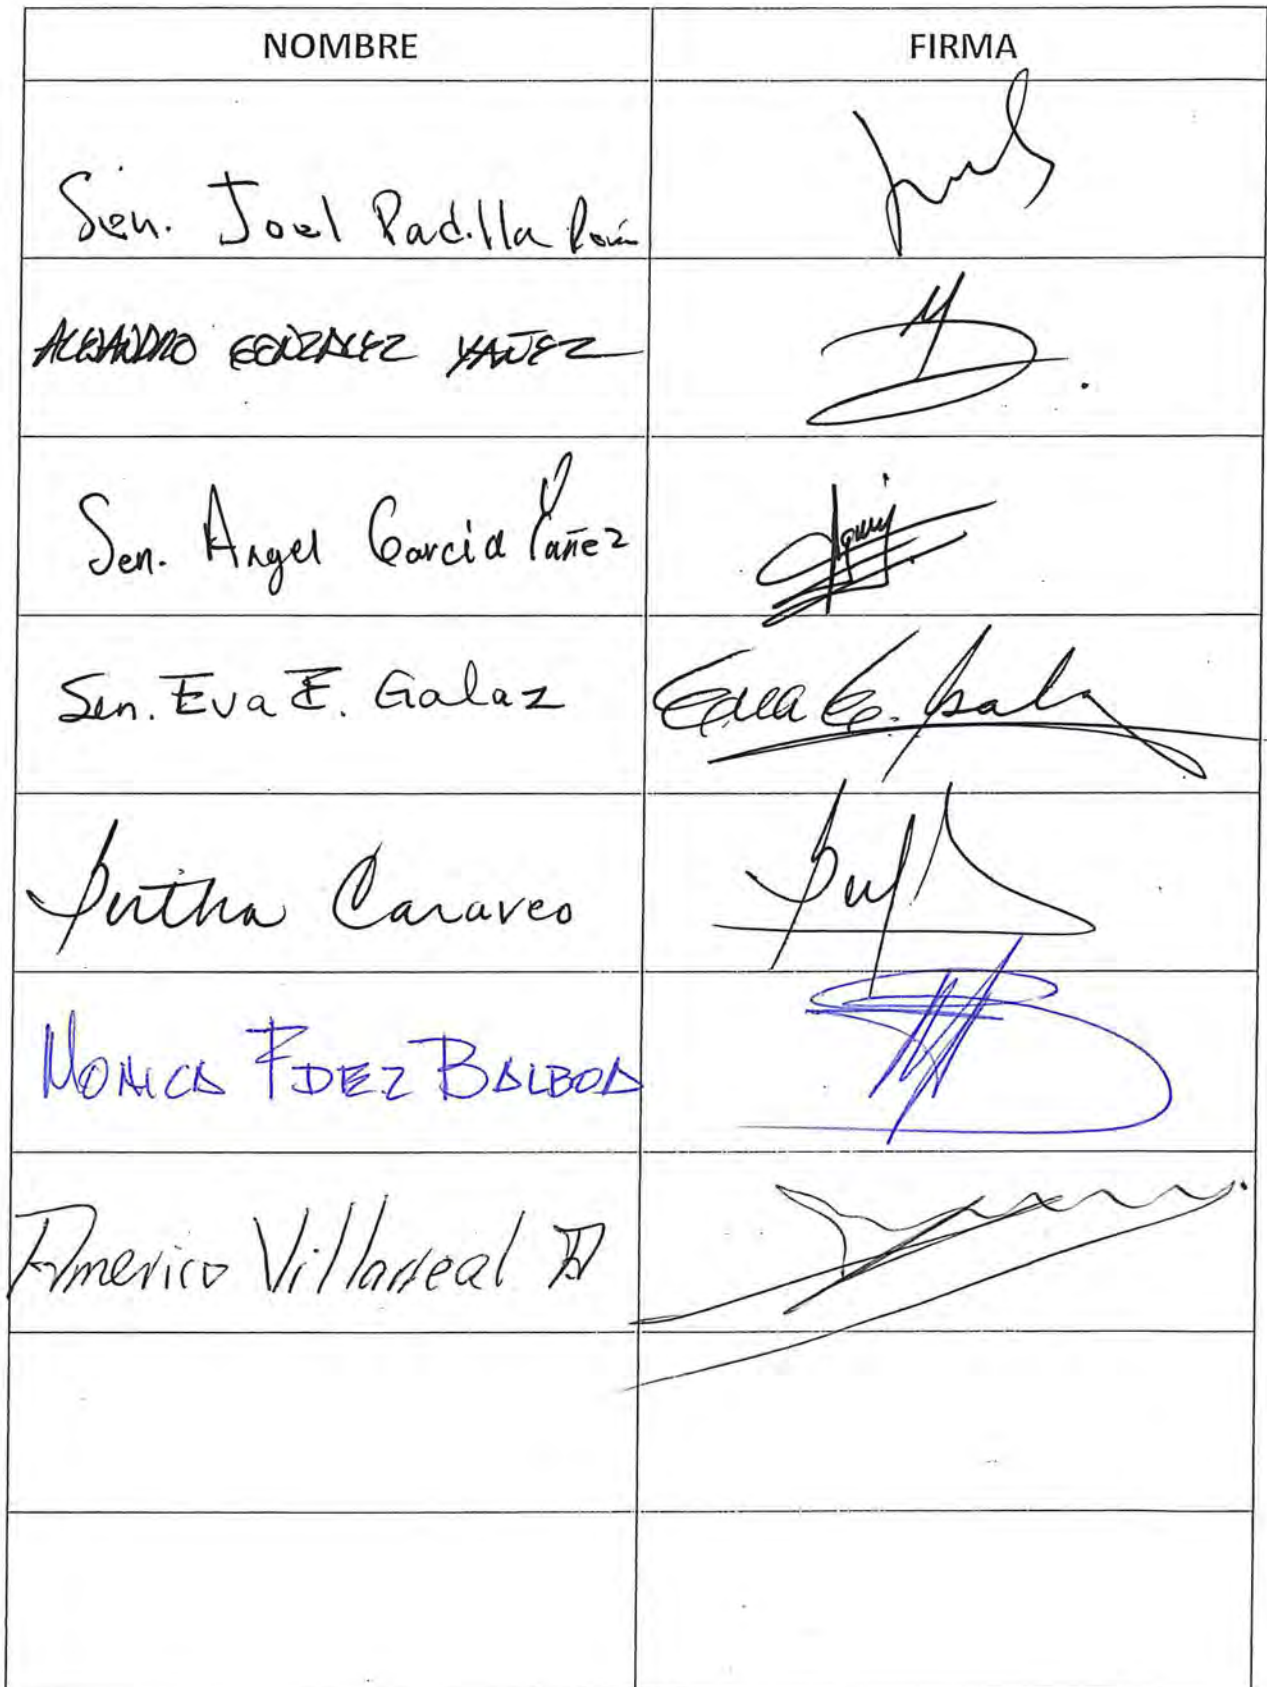 NOMBRE FIRMA
Sen. Joel Padilla
ALEJANDRO GONZALEZ YAÑEZ
Sen. Angel García Yañez
Sen. Eva E. Galaz Eva E. Galaz
Bertha Caraveo
MONICA FDEZ BALBOA
Americo Villarreal A